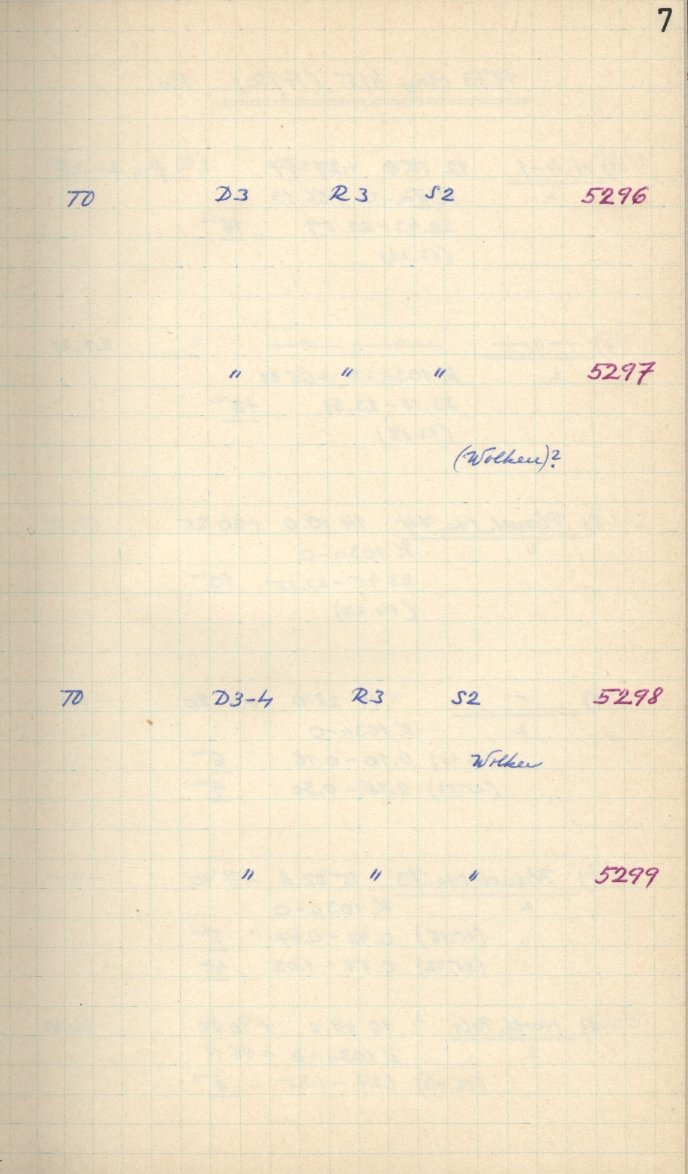 7
TO D3 R3 S2 5296
" " " 5297
(Wolken)?
TO D3-4 R3 S2 5298
Wolken
" " " 5299